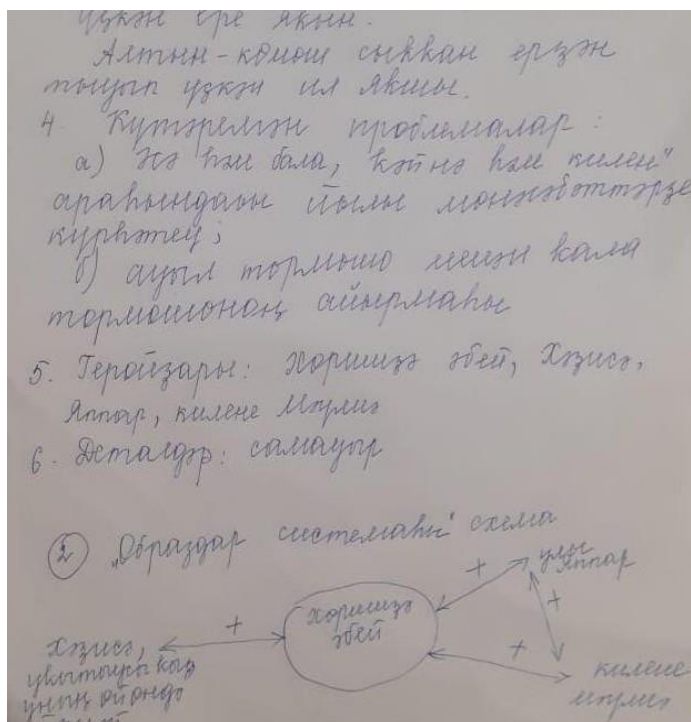 үҫкән ере яҡын.
Алтын-көмөш сыҡҡан ерҙән
тыуып үҫкән ил яҡшы.
4 Күтәрелгән проблемалар:
а) Әсә һәм бала, ҡәйнә һәм килен"
араһындағы йылы мөнәсәбәттәрҙе
күрһәтеү;
б) ауыл тормошо менән ҡала
тормошоноң айырмаһы
5. Геройҙары: Хөршиҙә әбей, Хәҙисә,
Яппар, килене Мәүлиә
6. Деталдәр: самауыр
2 „Образдар системаһы" схема
улы
Яппар
+
+
Хөршиҙә
әбей
+
+
Хәҙисә,
уҡытыусы ҡыҙ
уның өйөндә
килене
Мәүлиә